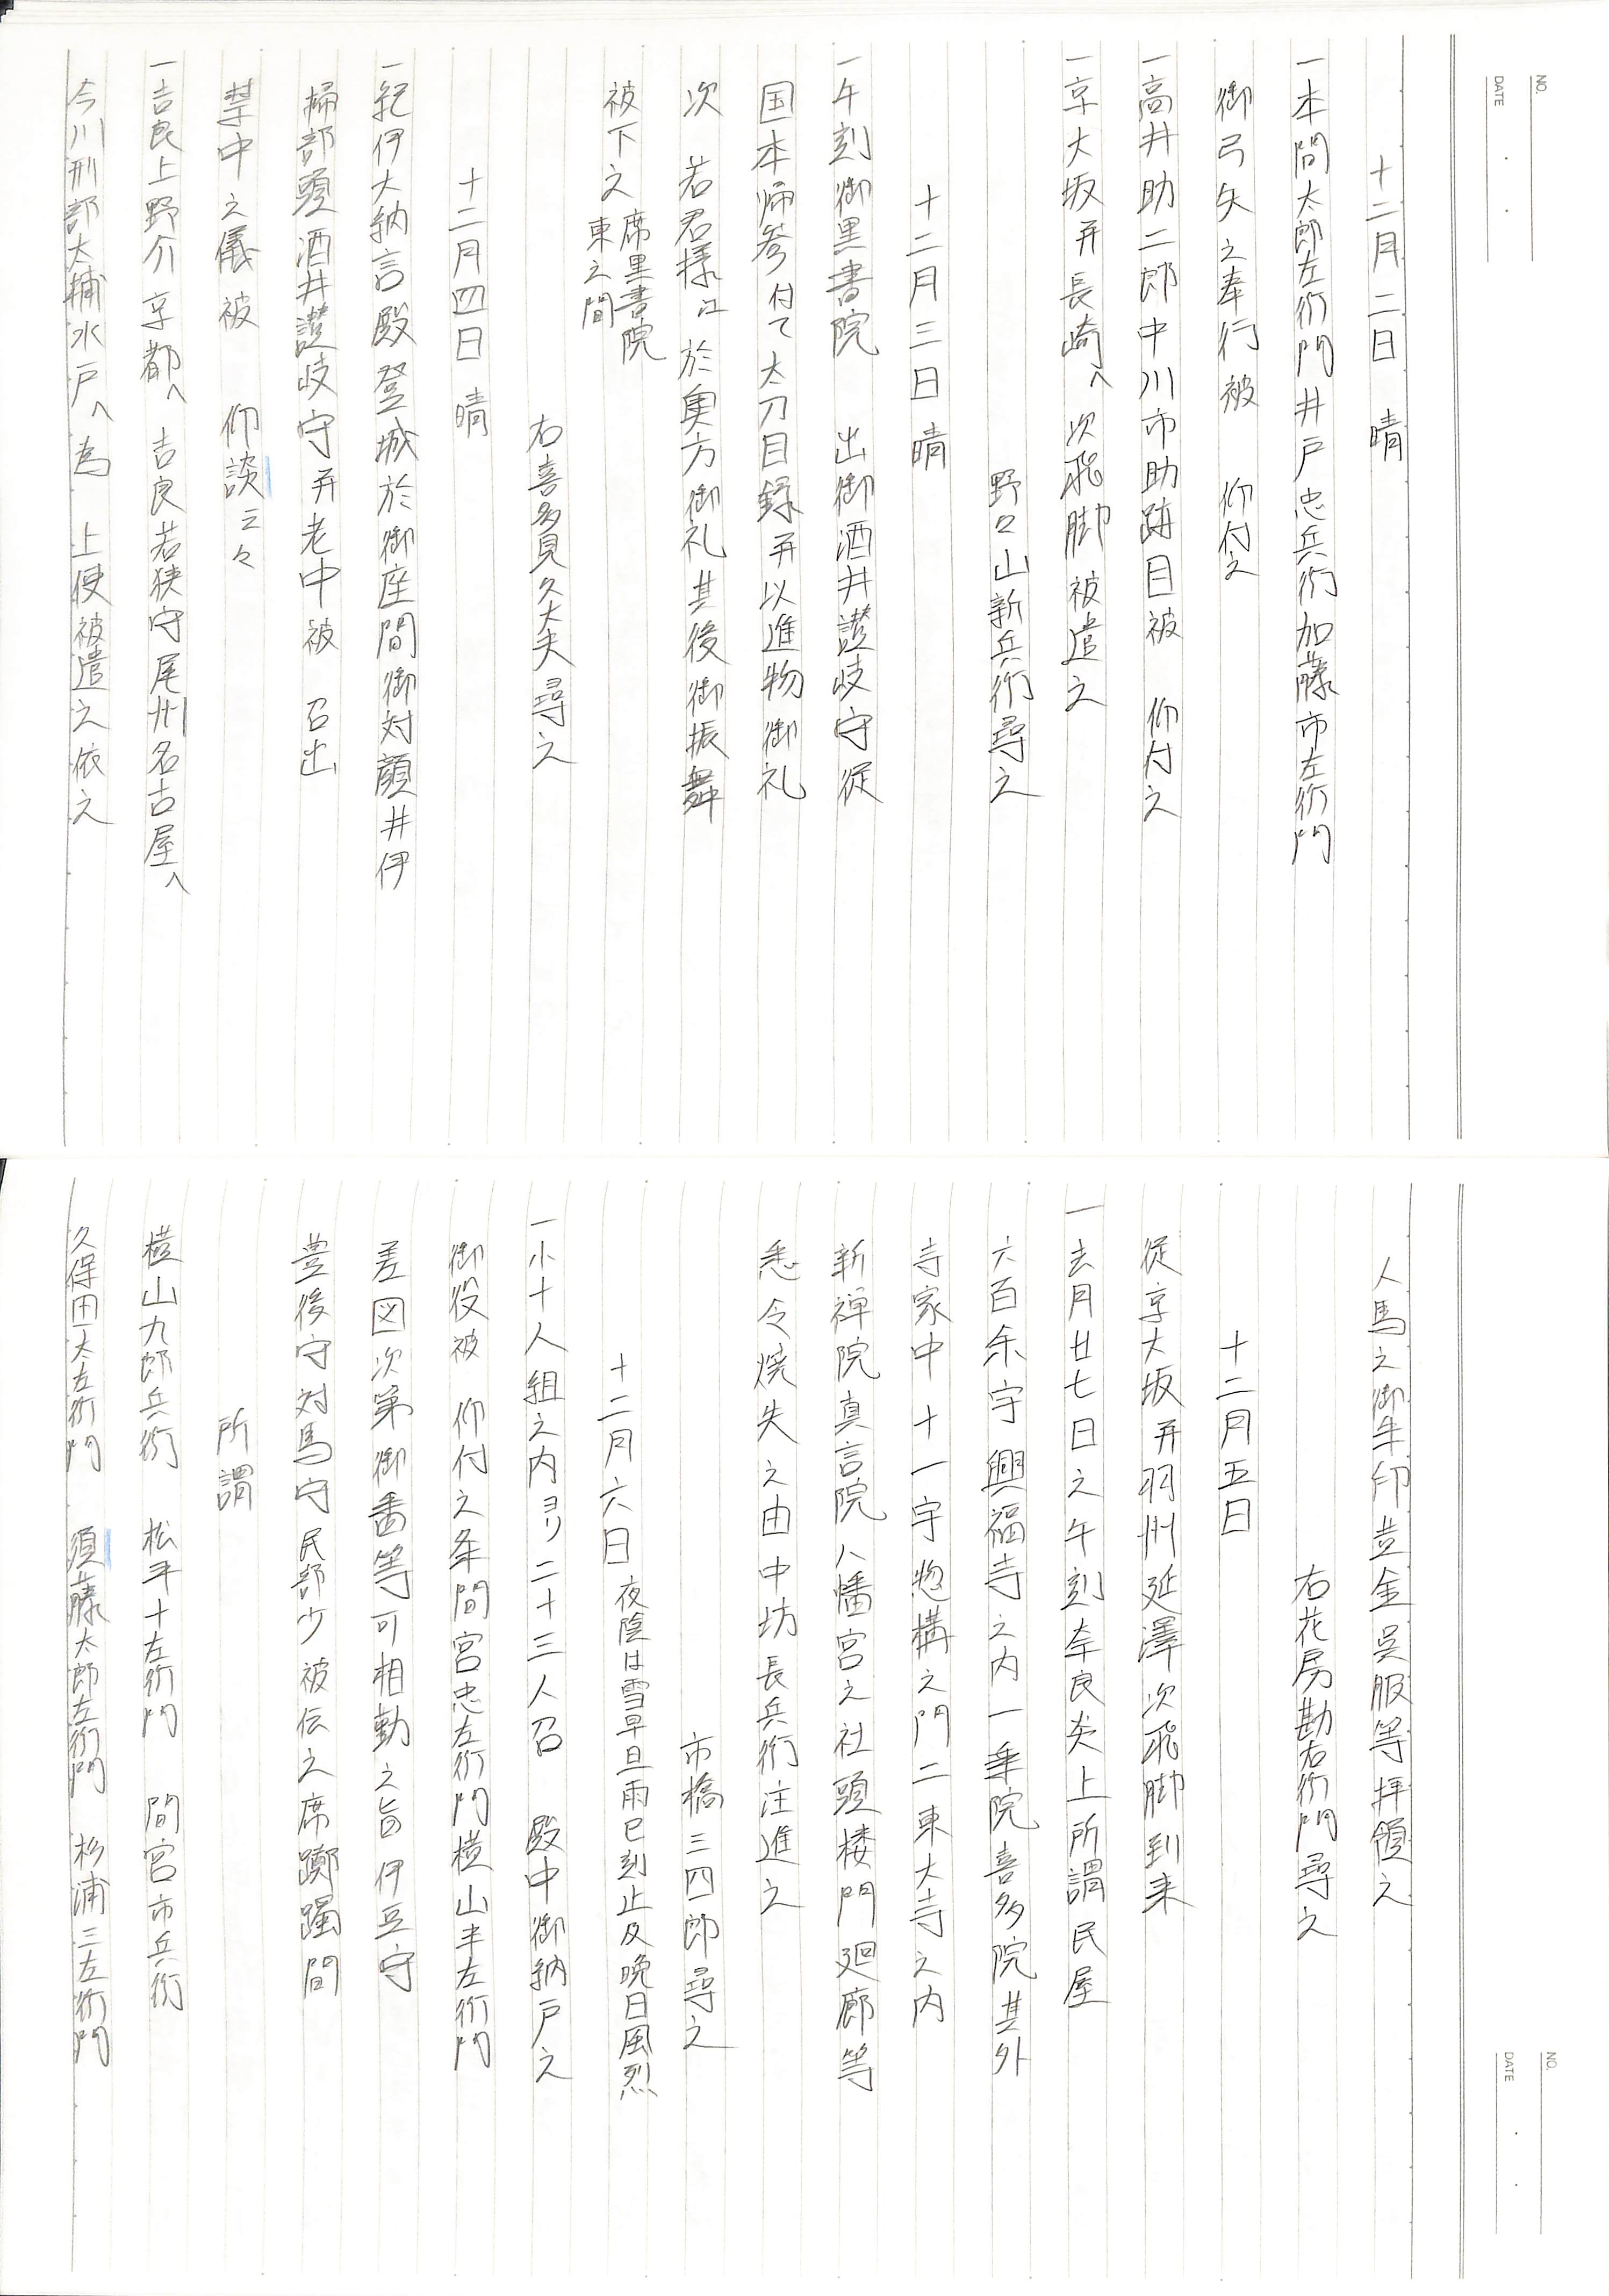 NO.
DATE
十二月二日 晴
一本間太郎左衛門井戸忠兵衛加藤市左衛門
御弓矢之奉行被 仰付之
一高井助二郎中川市助跡目被 仰付之
一京大坂并長崎へ次飛脚被遣之
野々山新兵衛尋之
十二月三日 晴
一午刻御黒書院 出御酒井讃岐守従
国本帰参付て太刀目録并以進物御礼
次 若君様江於奥方御礼其後御振舞
被下之 席黒書院
東之間
右喜多見久大夫尋之
十二月四日 晴
一紀伊大納言殿登城於御座間御対顔井伊
掃部頭酒井讃岐守并老中被 召出
禁中之儀被 仰談云々
一吉良上野介京都へ 吉良若狭守尾州名古屋へ
今川刑部太輔水戸へ為 上使被遣之依之
NO.
DATE
人馬之御朱印並金呉服等拝領之
右花房勘右衛門尋之
十二月五日
従京大坂并羽州延澤次飛脚到来
一去月廿七日之午刻奈良炎上所謂民屋
六百余宇興福寺之内一乗院喜多院其外
寺家中十一宇惣構之門二東大寺之内
新禅院真言院八幡宮之社頭楼門廻廊等
悉令焼失之由中坊長兵衛注進之
市橋三四郎尋之
十二月六日 夜陰は雪早旦雨巳刻止及晩日風烈
一小十人組之内ヨリ二十三人召 殿中御納戸之
御役被 仰付之条間宮忠左衛門横山半左衛門
差図次第御番等可相勤之旨伊豆守
豊後守対馬守民部少被伝之席躑躅間
所謂
横山九郎兵衛 松平十左衛門 間宮市兵衛
久保田太左衛門 須藤太郎左衛門 杉浦三左衛門